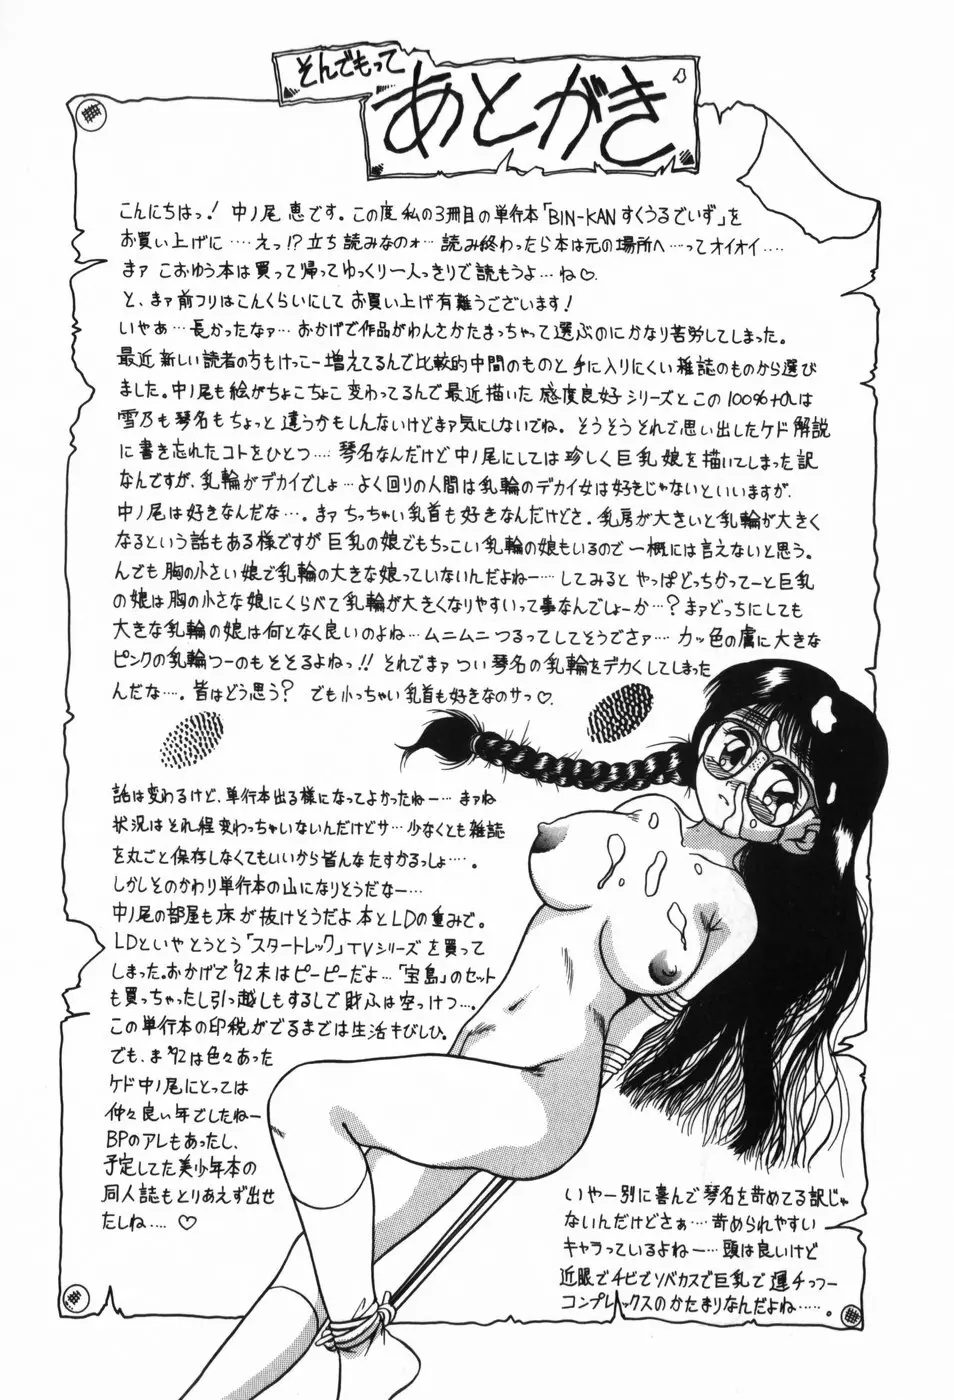 そんでもって
あとがき
こんにちはっ! 中ノ尾 恵です。この度 私の3冊目の単行本「BIN-KANすくうるでいず」を
お買い上げに ‥‥えっ!?立ち読みなのォ…読み終わったら本は元の場所へ…ってオイオイ‥‥
まァ こおゆう本は買って帰ってゆっくり一人っきりで読もうよ…ね♡
と、まァ前フリはこんくらいにして お買い上げ有難うございます!
いやあ…長かったなァ…おかげで作品がわんさかたまっちゃって選ぶのにかなり苦労してしまった。
最近 新しい読者の方もけっこー増えてるんで比較的中間のものと手に入りにくい雑誌のものから選び
ました。中ノ尾も絵がちょこちょこ変わってるんで最近描いた感度良好シリーズとこの100%は
雪乃も琴名もちょっと違うかもしんないけどまァ気にしないでね。そうそうそれで思い出したケド解説
に書き忘れたコトをひとつ‥‥琴名なんだけど中ノ尾にしては珍しく巨乳娘を描いてしまった訳
なんですが、乳輪がデカイでしょ…よく回りの人間は乳輪のデカイ女は好きじゃないといいますが、
中ノ尾は好きなんだな…。まァちっちゃい乳首も好きなんだけどさ。乳房が大きいと乳輪が大きく
なるという話もある様ですが巨乳の娘でもちっこい乳輪の娘もいるので一概には言えないと思う。
んでも胸の小さい娘で乳輪の大きな娘っていないんだよねー‥‥してみるとやっぱどっちかってーと巨乳
の娘は胸の小さな娘にくらべて乳輪が大きくなりやすいって事なんでしょーか…?まァどっちにしても
大きな乳輪の娘は何となく良いのよね…ムニムニつるってしてそうでさァ‥‥カッ色の膚に大きな
ピンクの乳輪つーのもそそるよねっ!! それでまァつい琴名の乳輪をデカくしてしまった
んだな…。皆はどう思う? でも小っちゃい乳首も好きなのサっ♡.
話は変わるけど、単行本出る様になってよかったねー…まァね
状況はそれ程変わっちゃいないんだけどサ…少なくとも雑誌
を丸ごと保存しなくてもいいから皆んなたすかるっしょ‥‥。
しかしそのかわり単行本の山になりそうだなー…
中ノ尾の部屋も床が抜けそうだよ本とLDの重みで。
LDといやとうとう「スタートレック」TVシリーズを買って
しまった。おかげで'92末はピーピーだよ…「宝島」のセット
も買っちゃったし引っ越しもするしで財ふは空っけつ…。
この単行本の印税がでるまでは生活キびしひ。
でも、ま'92は色々あった
ケド中ノ尾にとっては
仲々良い年でしたねー
BPのアレもあったし、
予定してた美少年本の
同人誌もとりあえず出せ
たしね…. ♡
いやー別に喜んで琴名を苛めてる訳じゃ
ないんだけどさぁ‥‥苛められやすい
キャラっているよねー…頭は良いけど
近眼でチビでソバカスで巨乳で運チっつー
コンプレックスのかたまりなんだよね‥‥。